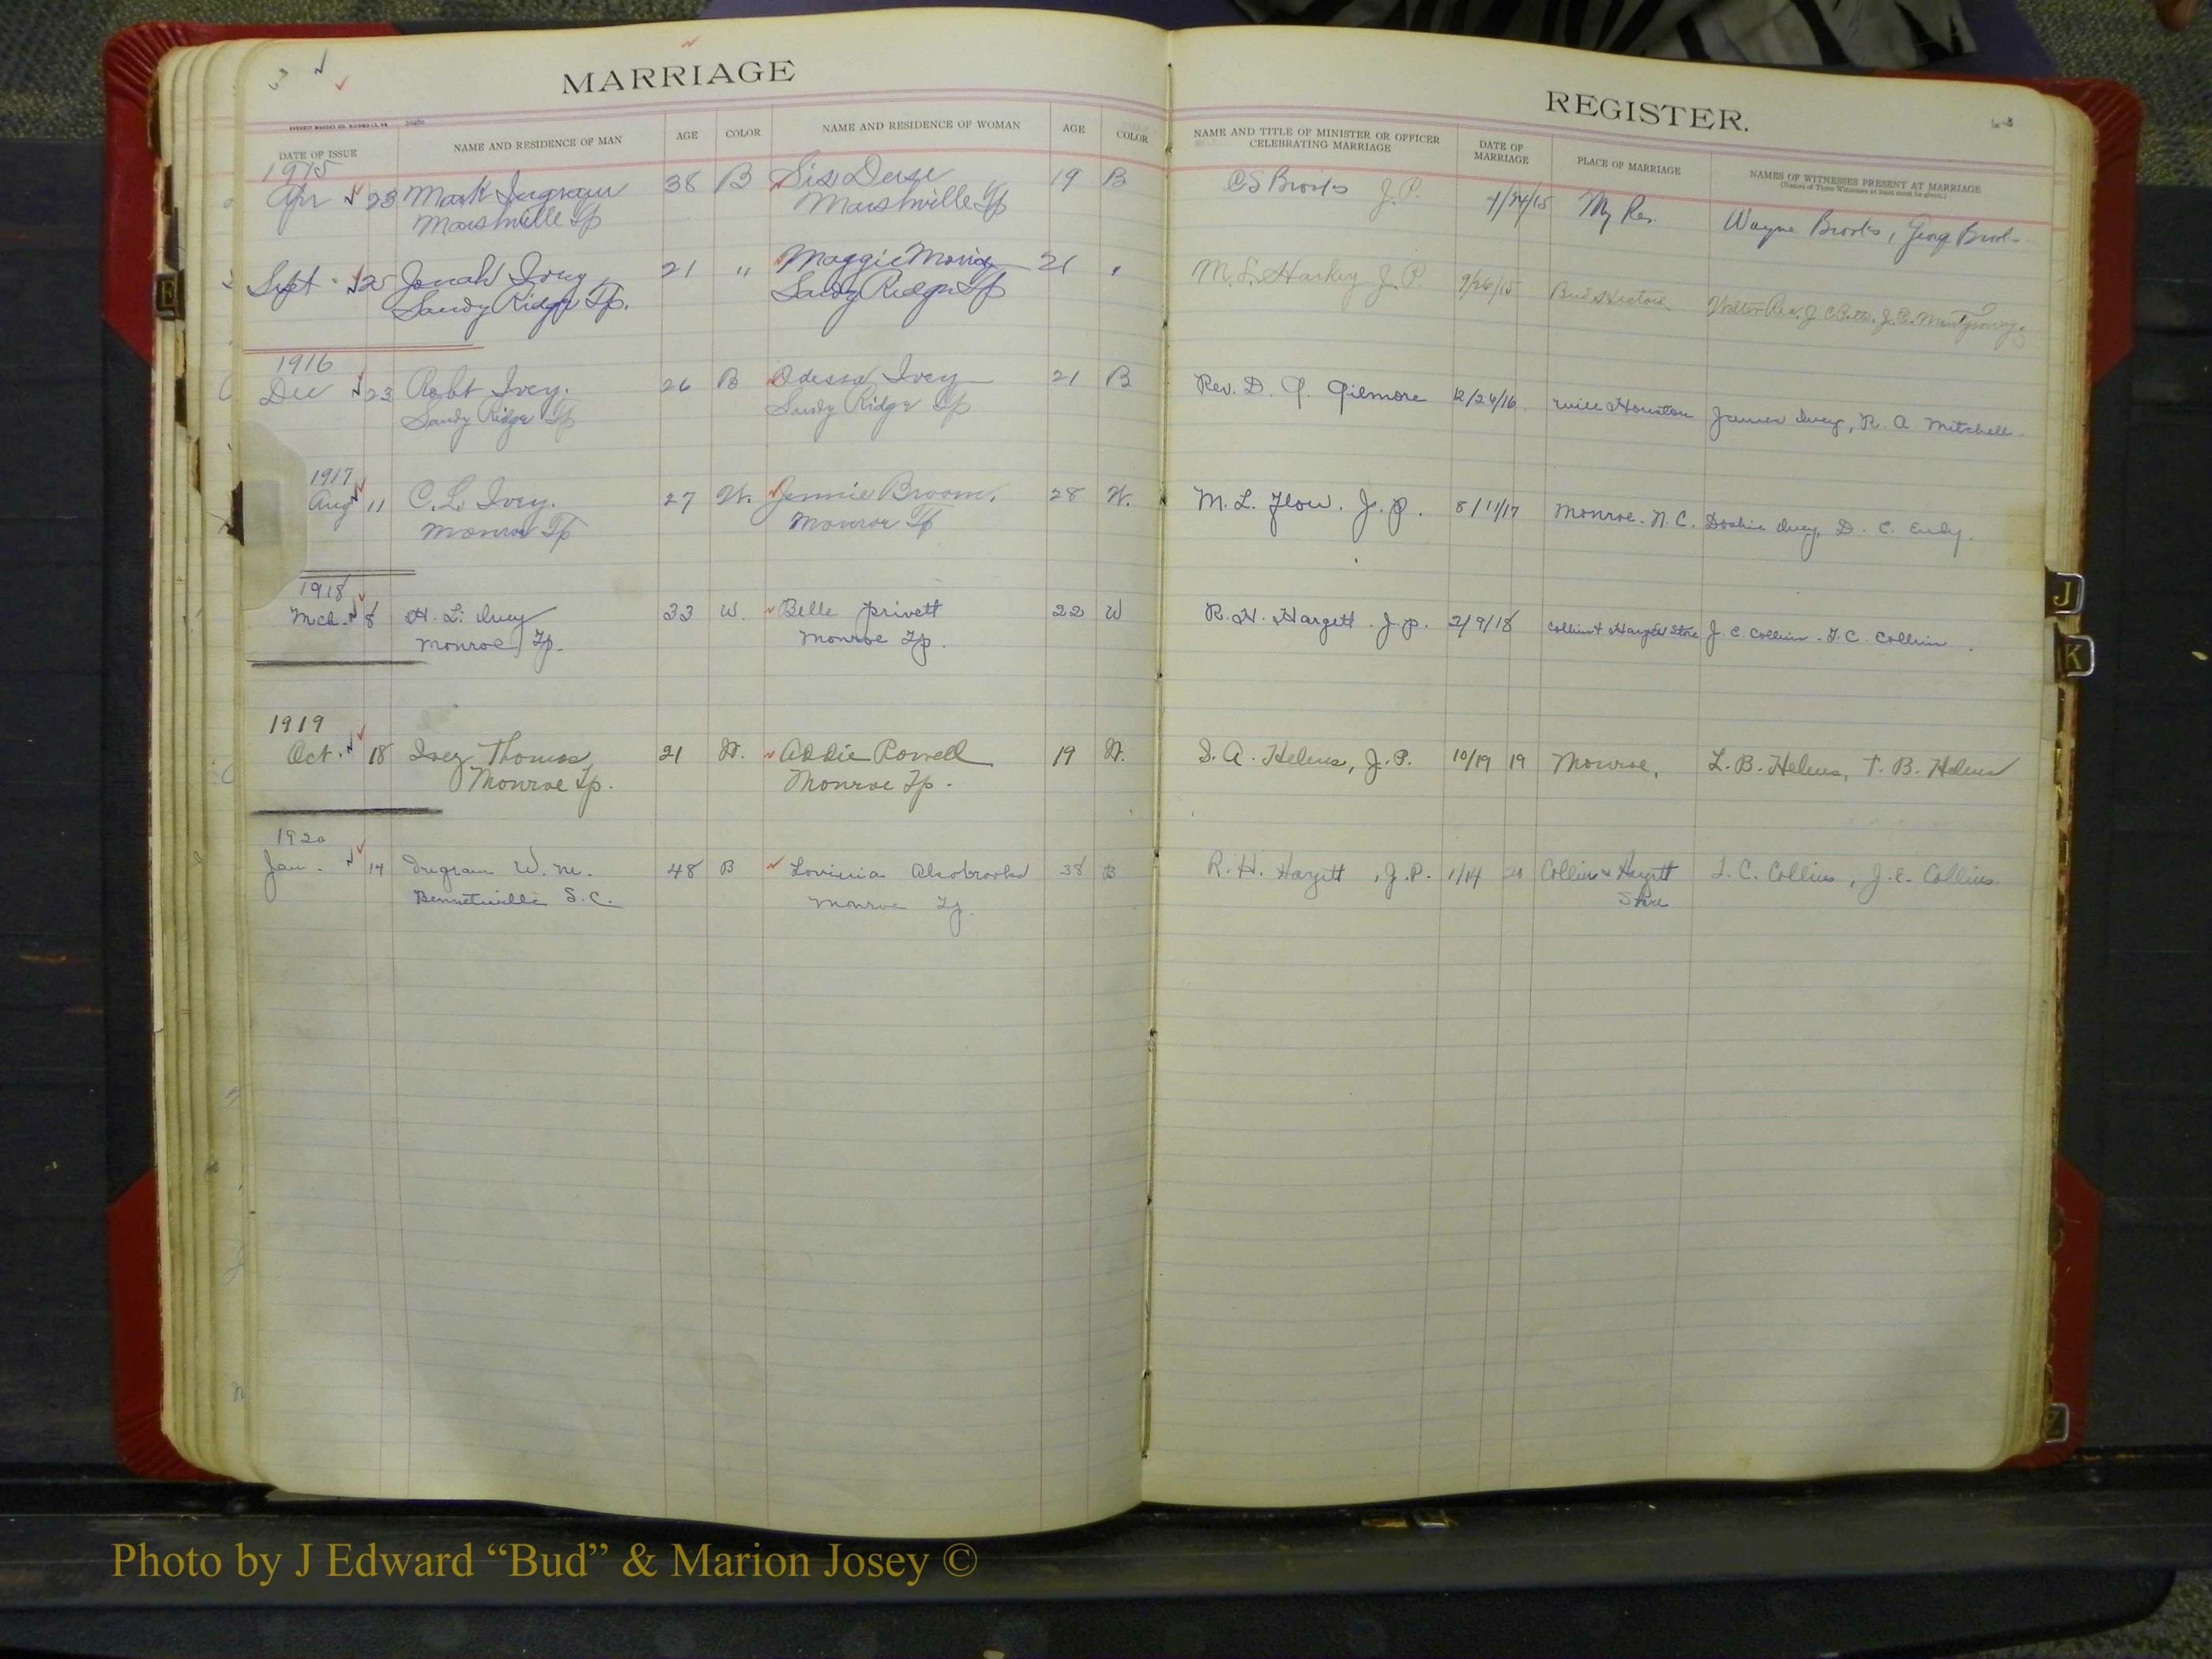 MARRIAGE
DATE OF ISSUE NAME AND RESIDENCE OF MAN AGE COLOR NAME AND RESIDENCE OF WOMAN AGE COLOR
1915
Apr 23 Mark Ingram 38 B Sis 19 B
Marshville Tp Marshville Tp
Sept 25 Jonah Ivey 21 " Maggie 21 "
Sandy Ridge Tp. Sandy Ridge Tp
1916
Dec 23 Robt Ivey. 26 B Odessa Ivey 21 B
Sandy Ridge Tp Sandy Ridge Tp
1917
Aug 11 C. L. Ivey. 27 W. Jennie Broom. 28 W.
Monroe Tp Monroe Tp
1918
Mch. 8 H. L. Ivey 33 W. Belle Privett 22 W
Monroe Tp. Monroe Tp.
1919
Oct. 18 Ivey Thomas 21 W. Addie Rowell 19 W.
Monroe Tp. Monroe Tp.
1920
Jan. 14 Ingram W. M. 48 B Lovinia Alsobrooks 38 B
Bennetsville S.C. Monroe Tp.
REGISTER.
NAME AND TITLE OF MINISTER OR OFFICER CELEBRATING MARRIAGE DATE OF MARRIAGE PLACE OF MARRIAGE NAMES OF WITNESSES PRESENT AT MARRIAGE
(Names of Three Witnesses at least must be given.)
C S Brooks J.P. 4/24/15 My Res. Wayne Brooks, George Brooks
M. L. Harkey J. P. 9/26/15 Walter Rea, J C Potts, J. E. Montgomery
Rev. D. Gilmore 12/24/16 Houston James Ivey, R. A Mitchell
M. L. Flow. J. P. 8/11/17 Monroe. N. C. Ivey, D. C.
R. H. Hargett. J. P. 2/9/18 Collins & Hargett Store J. E. Collins. T. C. Collins
S. A. Helms, J. P. 10/19 19 Monroe, L. B. Helms, T. B. Helms
R. H. Hargett, J. P. 1/14 20 Collins & Hargett T. C. Collins, J. E. Collins
Store
E
J
K
Z
Photo by J Edward “Bud” & Marion Josey ©